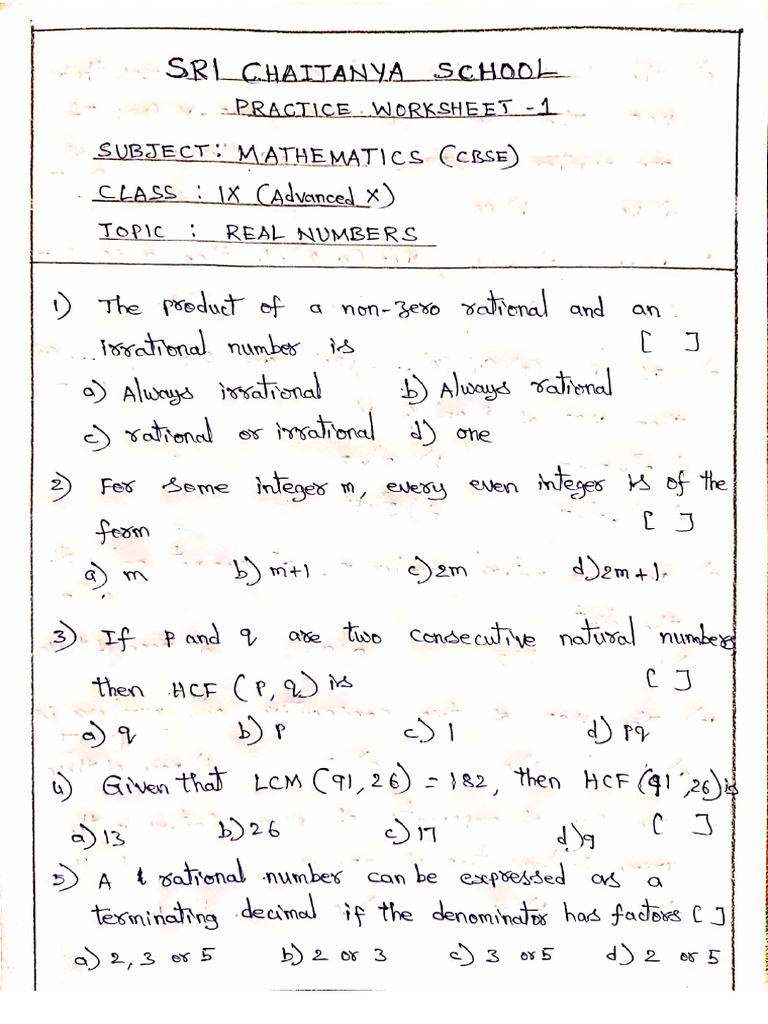 SRI CHAITANYA SCHOOL
PRACTICE WORKSHEET -1
SUBJECT: MATHEMATICS (CBSE)
CLASS : IX (Advanced X)
TOPIC : REAL NUMBERS
1) The product of a non-zero rational and an
irrational number is [ ]
a) Always irrational b) Always rational
c) rational or irrational d) one
2) For some integer m, every even integer is of the
form [ ]
a) m b) m+1 c) 2m d) 2m+1.
3) If p and q are two consecutive natural numbers,
then HCF (P, q) is [ ]
a) q b) p c) 1 d) pq
4) Given that LCM (91, 26) = 182, then HCF (91, 26) is
a) 13 b) 26 c) 17 d) 9 [ ]
5) A rational number can be expressed as a
terminating decimal if the denominator has factors [ ]
a) 2, 3 or 5 b) 2 or 3 c) 3 or 5 d) 2 or 5